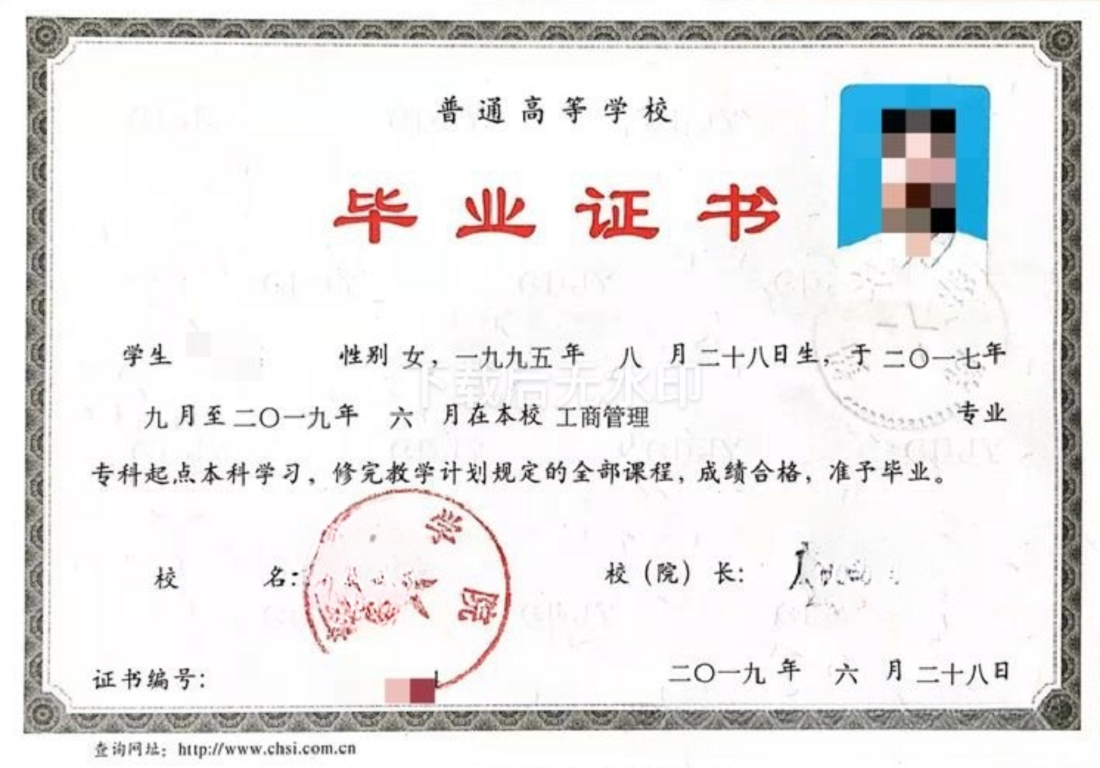 普通高等学校
毕业证书
学生 性别 女，一九九五年 八 月二十八日生，于二〇一七年
九月至二〇一九年 六 月在本校 工商管理 专业
专科起点本科学习，修完教学计划规定的全部课程，成绩合格，准予毕业。
下载后无水印
校 名： 校（院）长：
学院
证书编号： 1
二〇一九年 六 月二十八日
查询网址：http://www.chsi.com.cn